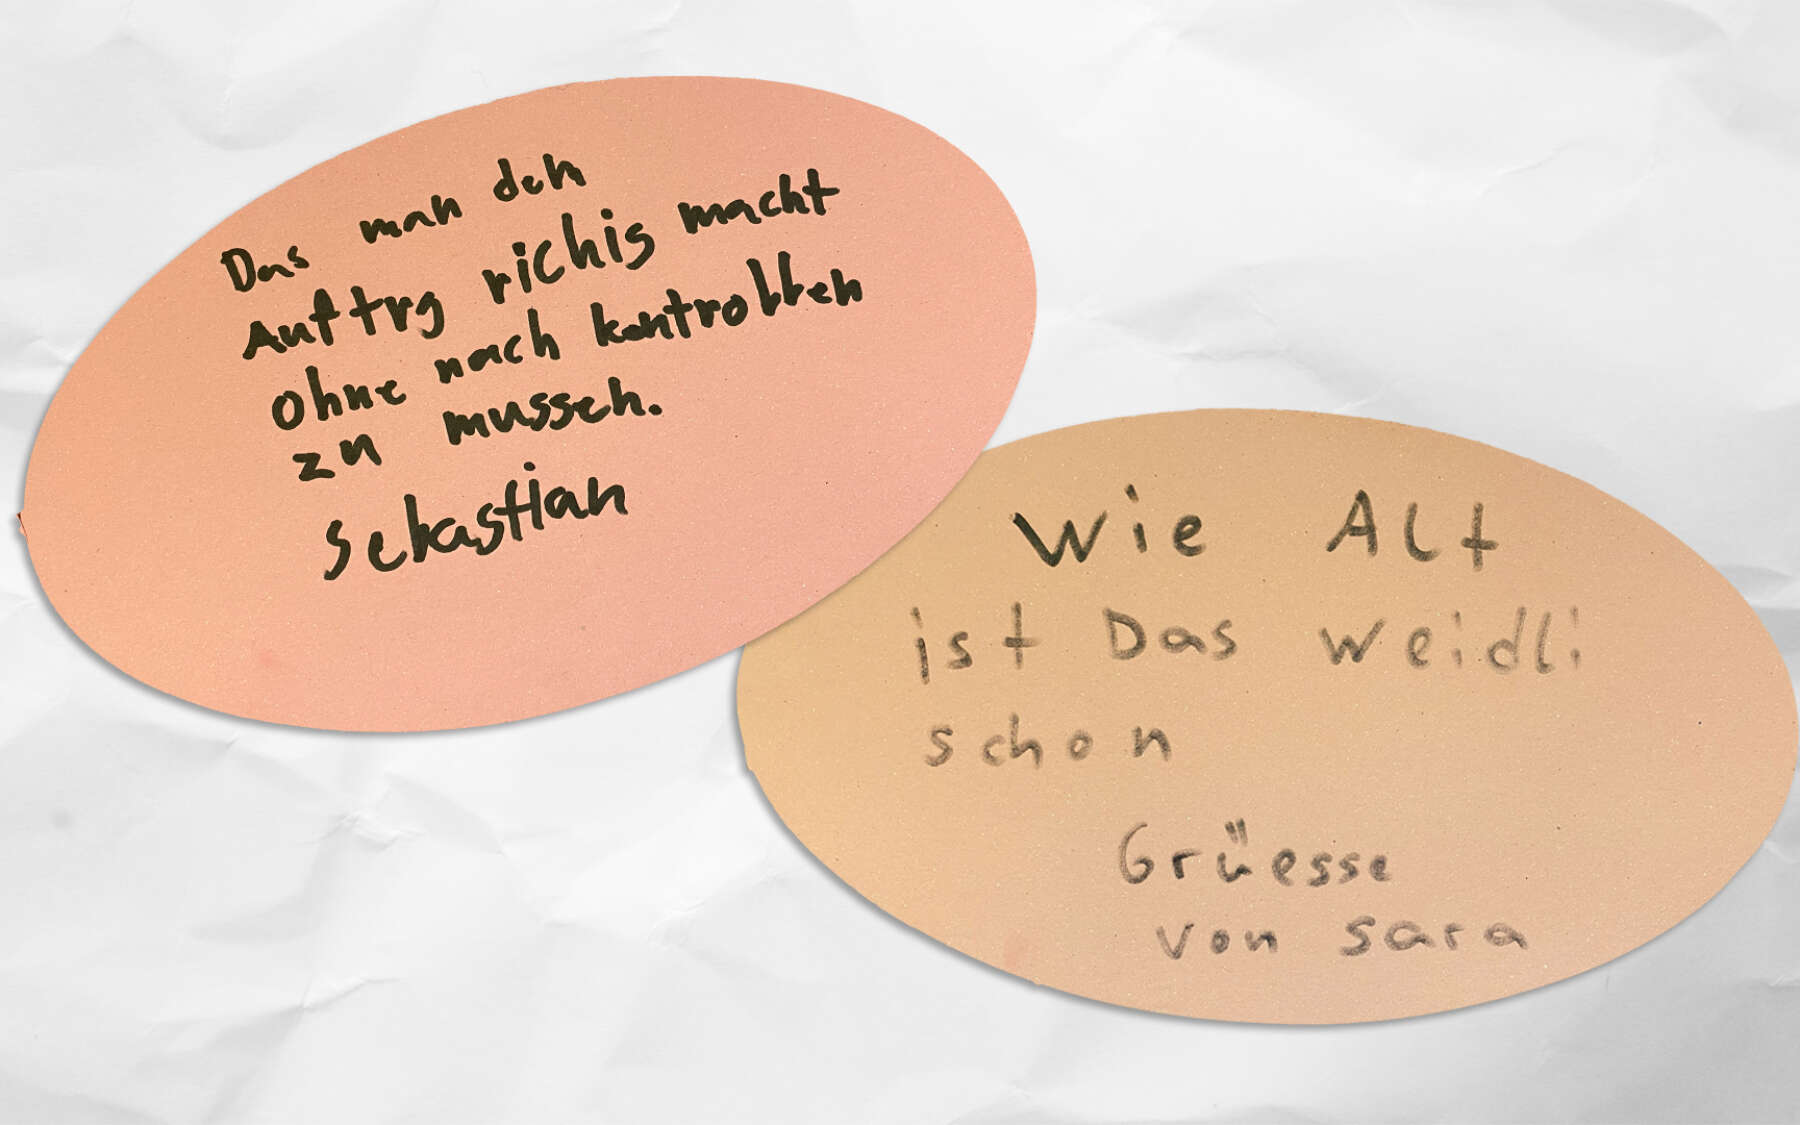 Das man den
Auftrg richis macht
ohne nach kontrollen
zu mussen.
Sebastian
Wie Alt
ist Das Weidli
schon
Grüesse
von Sara